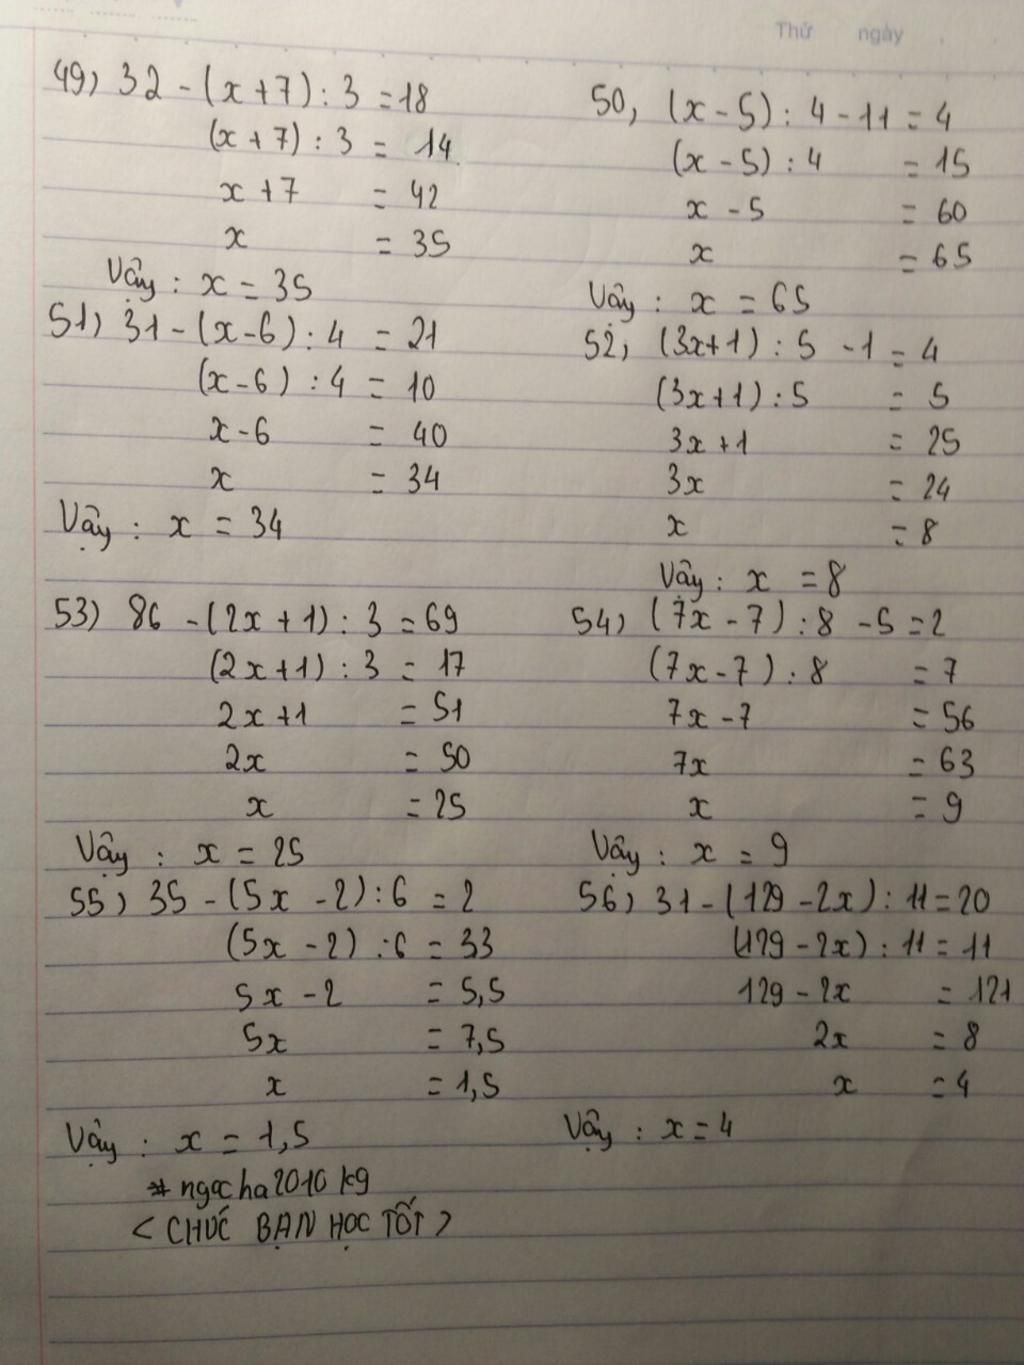 Thứ ngày
49) 32 - (x + 7) : 3 = 18
(x + 7) : 3 = 14
x + 7 = 42
x = 35
Vậy : x = 35
50, (x - 5) : 4 - 11 = 4
(x - 5) : 4 = 15
x - 5 = 60
x = 65
Vậy : x = 65
51) 31 - (x - 6) : 4 = 21
(x - 6) : 4 = 10
x - 6 = 40
x = 34
Vậy : x = 34
52, (3x + 1) : 5 - 1 = 4
(3x + 1) : 5 = 5
3x + 1 = 25
3x = 24
x = 8
Vậy : x = 8
53) 86 - (2x + 1) : 3 = 69
(2x + 1) : 3 = 17
2x + 1 = 51
2x = 50
x = 25
Vậy : x = 25
54) (7x - 7) : 8 - 5 = 2
(7x - 7) : 8 = 7
7x - 7 = 56
7x = 63
x = 9
Vậy : x = 9
55) 35 - (5x - 2) : 6 = 2
(5x - 2) : 6 = 33
5x - 2 = 5,5
5x = 7,5
x = 1,5
Vậy : x = 1,5
56) 31 - (129 - 2x) : 11 = 20
(129 - 2x) : 11 = 11
129 - 2x = 121
2x = 8
x = 4
Vậy : x = 4
# ngocha2010kg
< CHÚC BẠN HỌC TỐT >